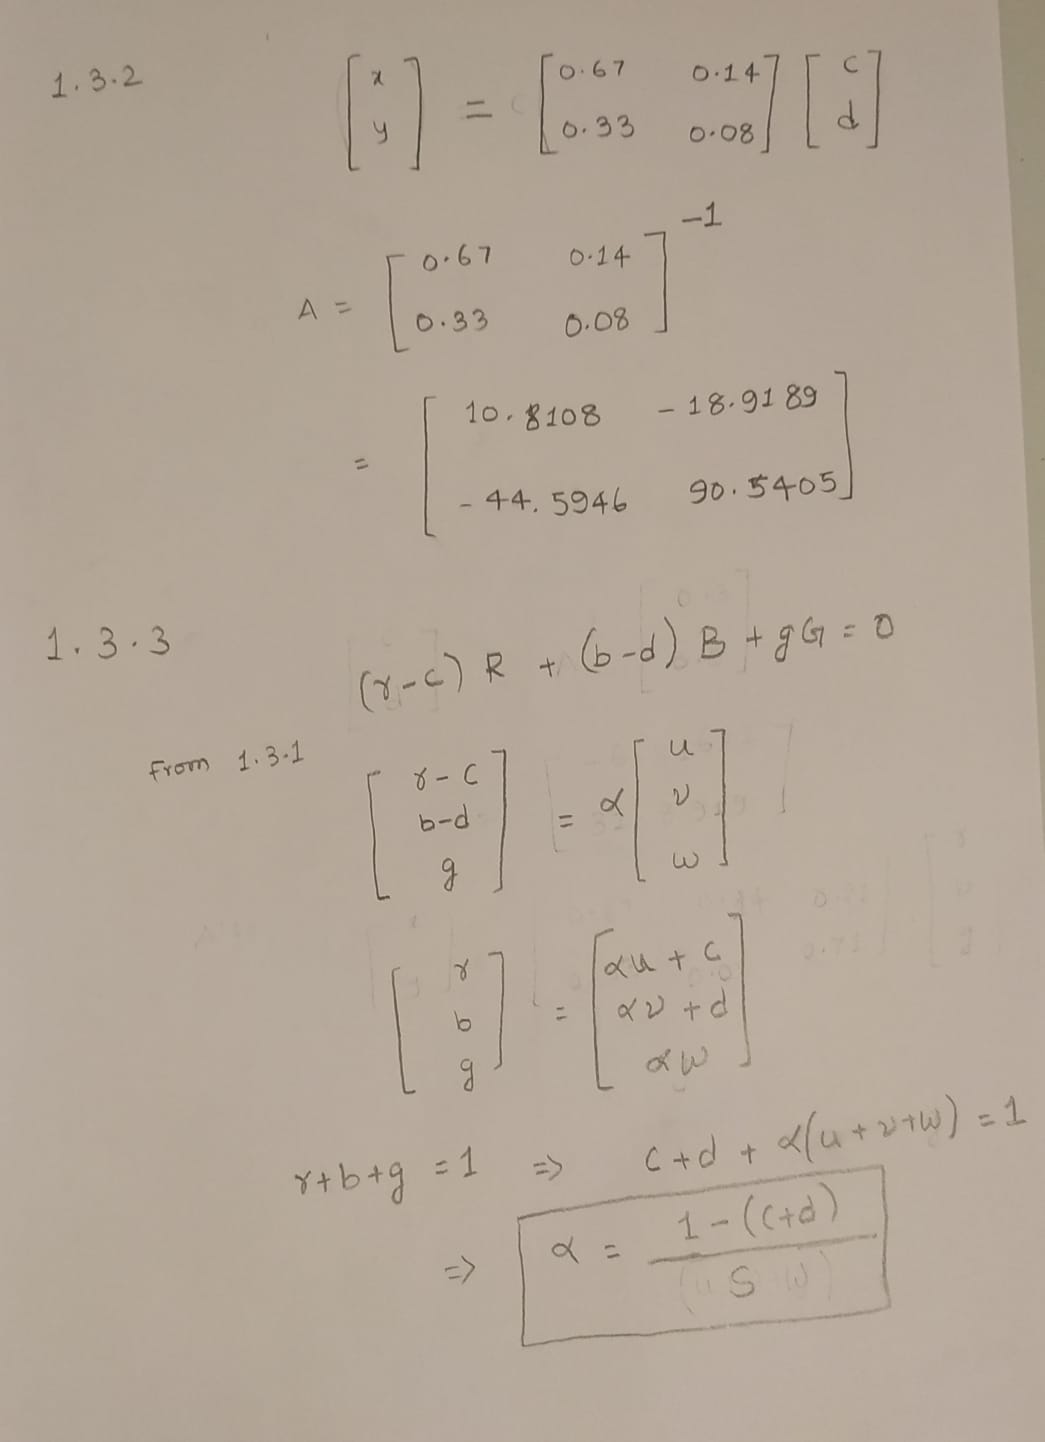 1.3.2 [x y] = [0.67 0.14 0.33 0.08] [c d]
A = [0.67 0.14 0.33 0.08]^-1
= [10.8108 -18.9189 -44.5946 90.5405]
1.3.3 (r-c) R + (b-d) B + gG = 0
From 1.3.1 [r-c b-d g] = α [u v w]
[r b g] = [αu + c αv + d αw]
r+b+g = 1 => c+d + α(u+v+w) = 1
=> α = 1-(c+d) / S